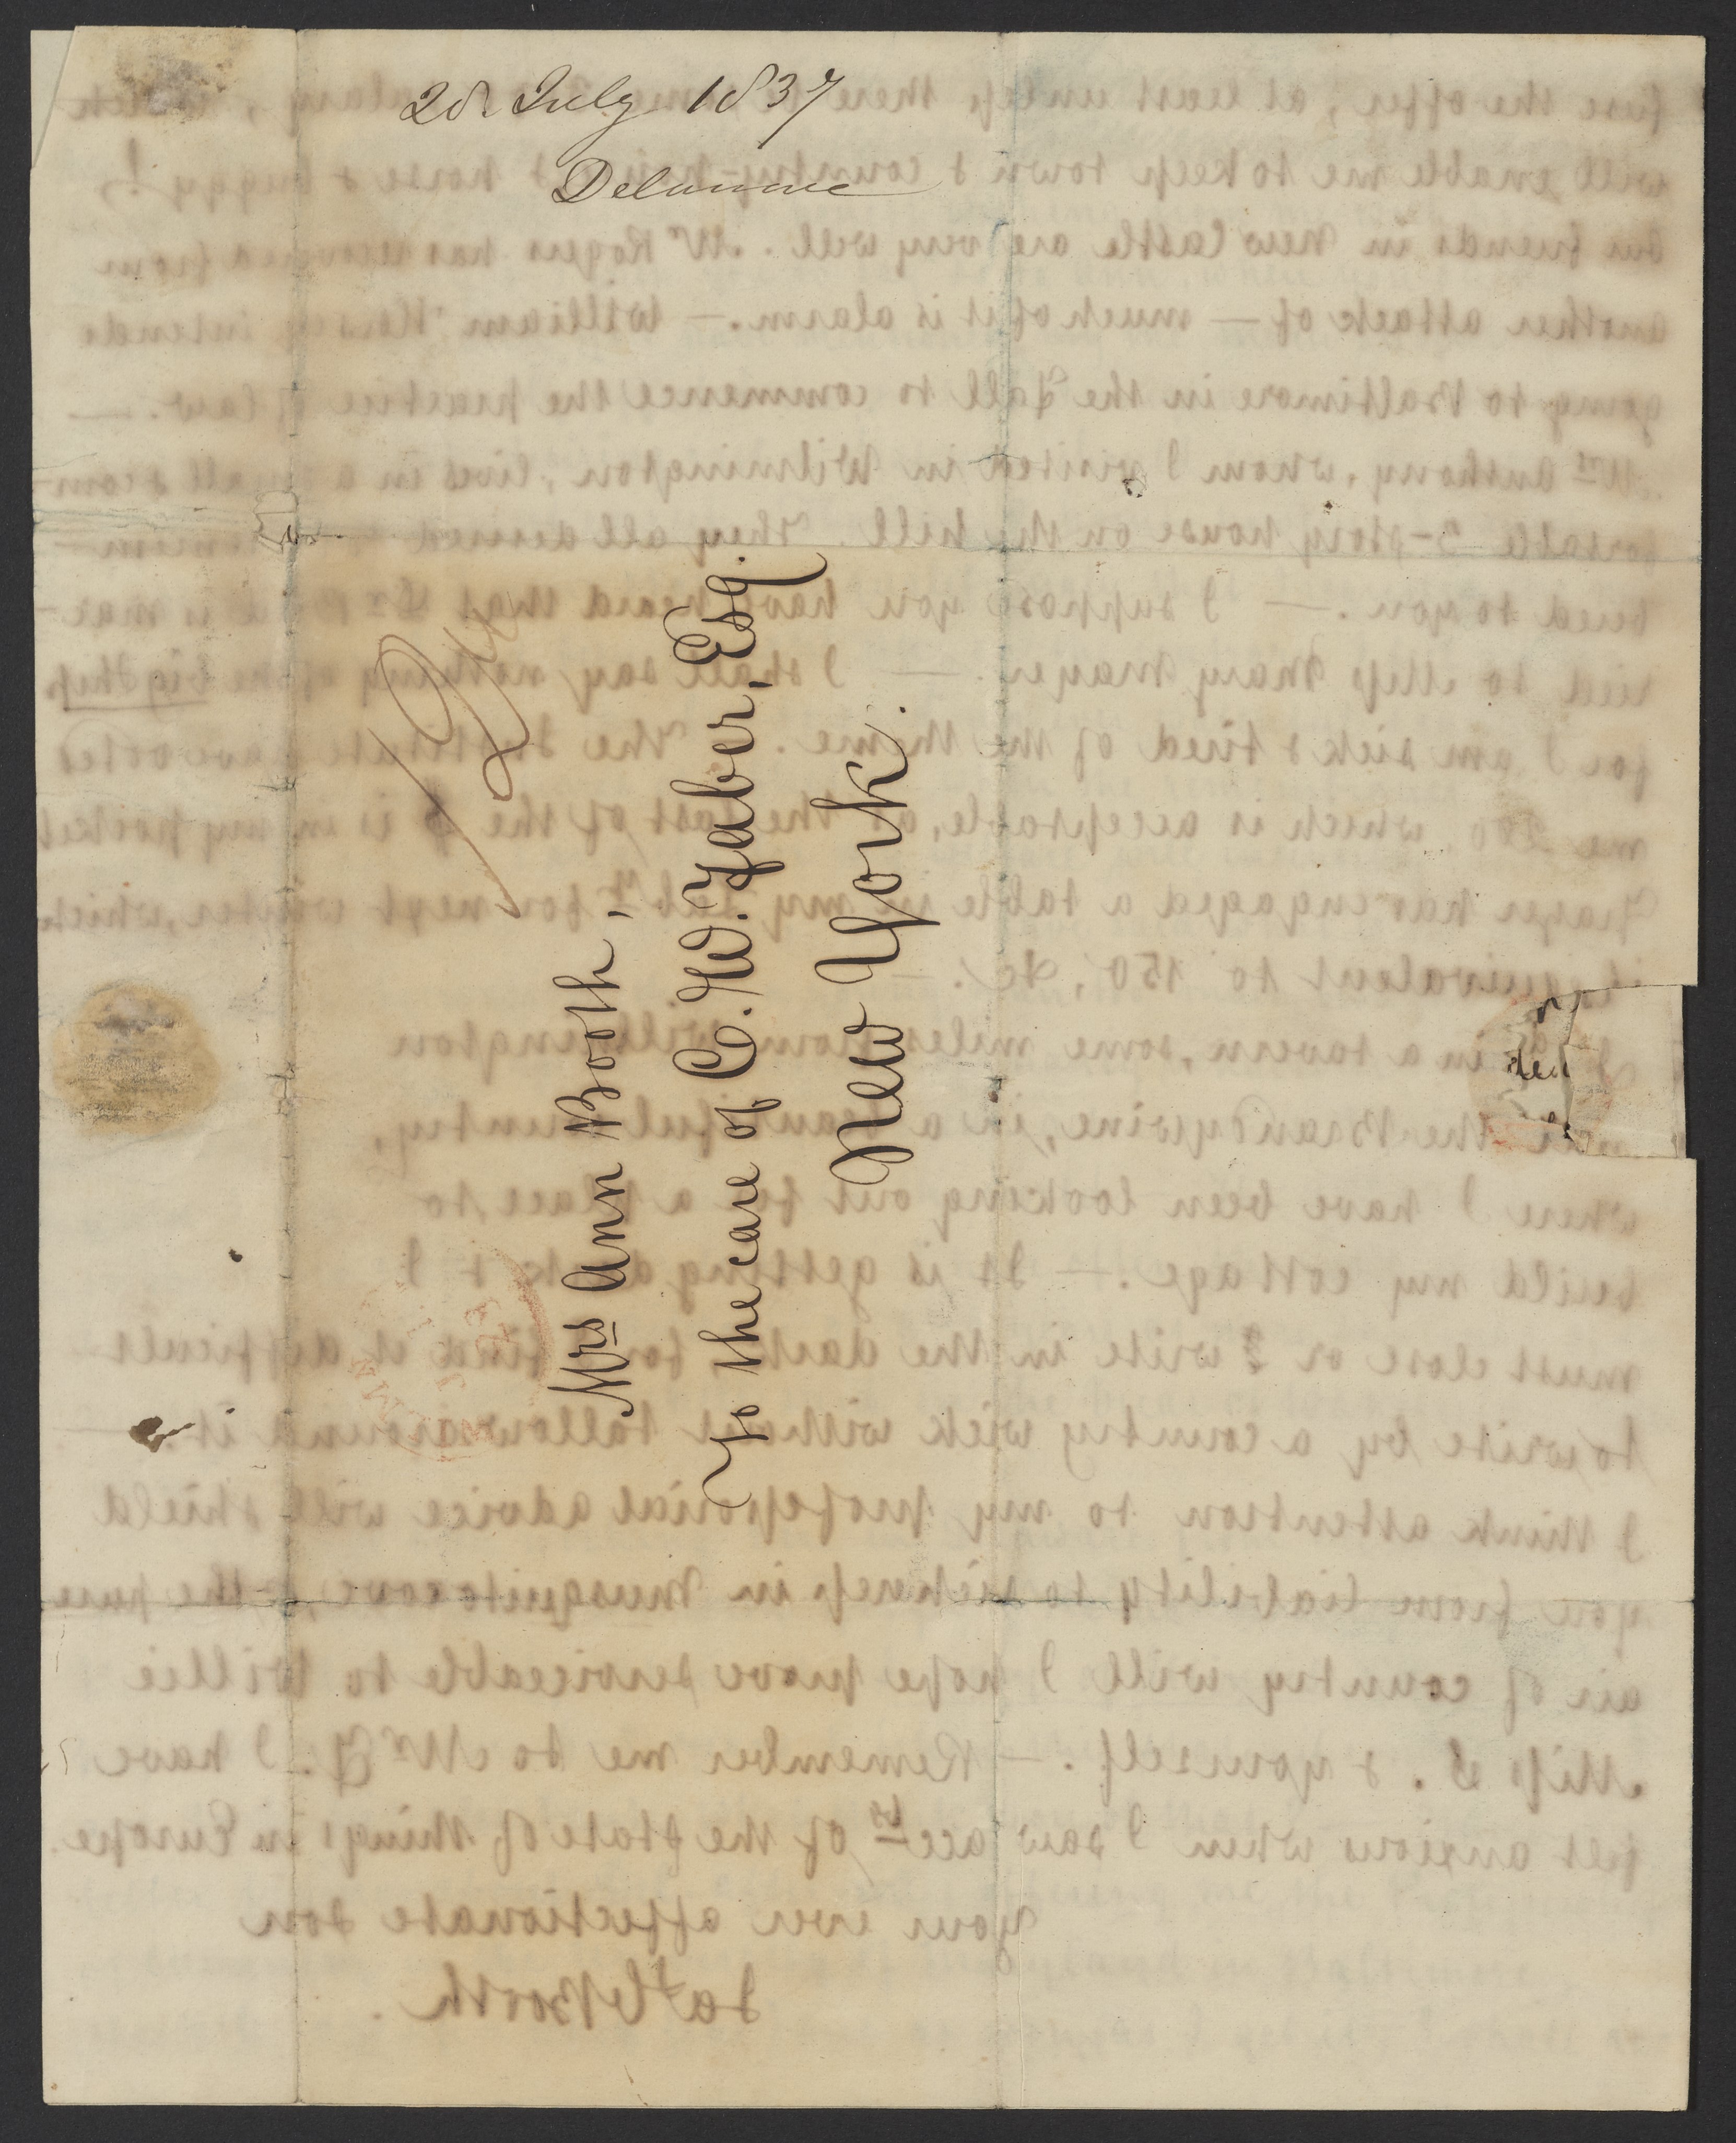 28 July 1837
Delaware
Mrs Ann Booth,
To the care of C. W. Faber, Esq.
New York.
fuse the offer, at least unless there is salary, which
will enable me to keep town & country & horse & buggy!,
our friends in New Castle are very well. Mr Rogers has recovered from
another attack of — much of it is alarm. — William intends
going to Baltimore in the Fall to commence the practice of law. —
Mrs Anthony, whom I visited in Wilmington, lives in a small & com-
fortable 3-story house on the hill. They all desired
bered to you. — I suppose you have heard that is mar-
ried to Miss Mary Mayer. — I shall say nothing of the big ship
for I am sick & tired of the theme. The Institute have voted
me 200 which is acceptable, as the last of the $ is in my pocket
Frazer has engaged a table in my Laby for next winter, which
is equivalent to 150, &c. —
in a tavern, some miles from Wilmington
the Brandywine, in a beautiful country,
where I have been looking out for a place to
build my cottage. — It is getting dark & I
must close or write in the dark, for I find it difficult
to write by a country wick without tallow around it. —
I think attention to my professorial advice will shield
you from liability to sickness in Musquitocove, & the pure
air of country will I hope prove serviceable to Willie
Miss S. & yourself. — Remember me to Mr F. I have
felt anxious when I saw accts of the state of things in Europe.
Your ever affectionate son
Jas C Booth.